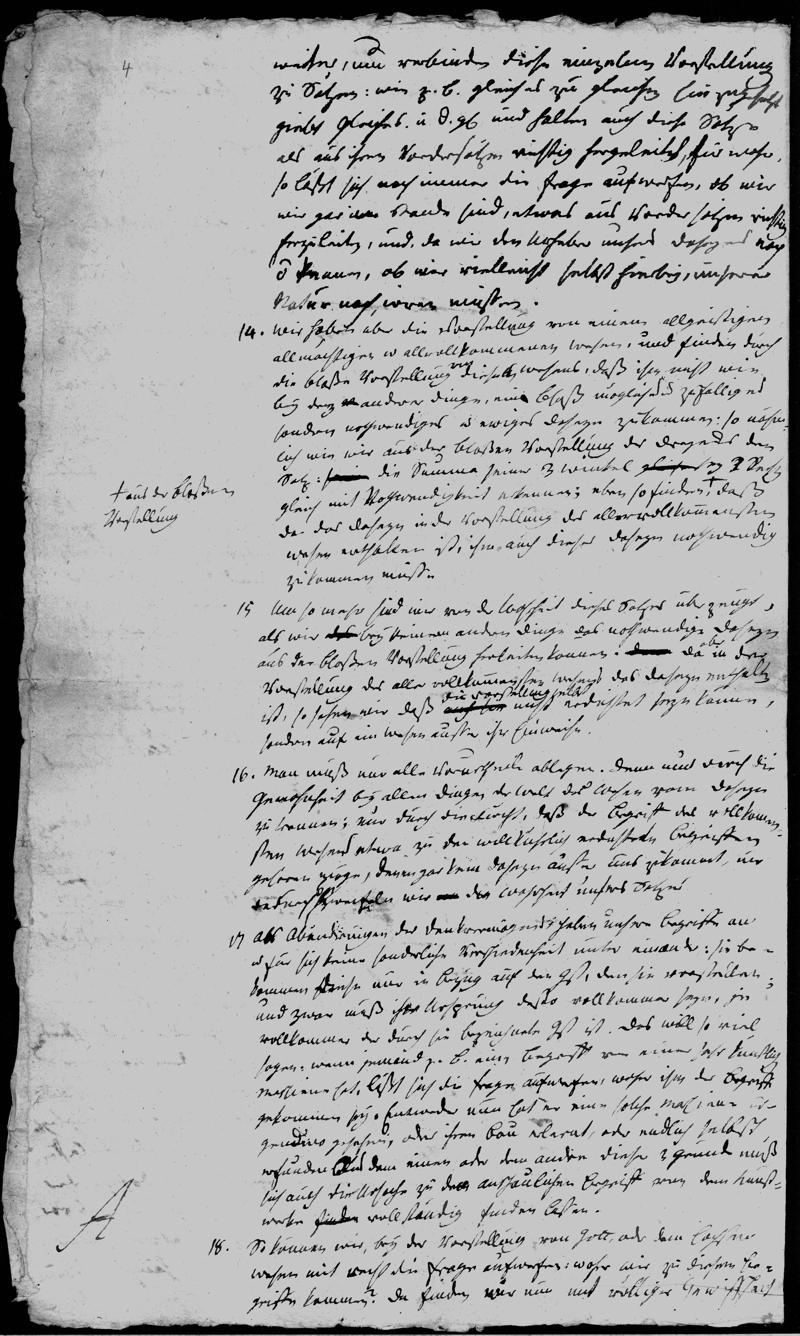 4
weiter, und verbinden diese einzelnen Vorstellung
zu Sätzen: wie z. b. gleiches zu gleichen hinzugesetzt
giebt gleiches. u d. gl und halten auch diese Sätze
als aus ihren Vordersätzen richtig hergeleitet, für wahr,
so läßt sich noch immer die frage aufwerfen, ob wir
wir gar im stande sind, etwas aus Vordersätzen richtig
herzuleiten, und, da wir den Urheber unsers daseyns noch
kennen, ob wir vielleicht selbst hierbey, unserer
Natur nach, irren müssen.
14. wir haben aber die Vorstellung von einem allgeistigen
allmächtigen u allvollkommenen wesen, und finden durch
die bloße Vorstellung von dieses wesens, daß ihm nicht wie
bey den anderer dinge, ein bloß mögliches zufälliges
sondern nothwendiges u ewiges daseyn zukomme: so nähm-
lich wie wir aus der bloßen Vorstellung des dreyecks den
Satz: die Summe seiner 3 winkel 2 Recht
gleich mit Nothwendigkeit erkennen; eben so finden, † daß
† aus der bloßen
Vorstellung
da das daseyn in der Vorstellung des allervollkommensten
wesen enthalten ist, ihm auch dieses daseyn nothwendig
zukommen müsse
15 Um so mehr sind wir von der Wahrheit dieses Satzes überzeugt,
als wir bey keinem andern dinge das nothwendige daseyn
aus der bloßen Vorstellung herleiten können: da aber in der
Vorstellung des aller vollkommensten wesens das daseyn enthalten
ist, so sehen wir daß die Vorstellung nicht erdichtet seyn könne,
sondern auf ein wesen außer ihr hinweise.
16. Man muß nur alle Vorurtheile ablegen. denn nur durch die
Gewohnheit bey allen dingen der welt das wesen vom daseyn
zu trennen; nur durch die furcht, daß der begriff des vollkommen-
sten wesens etwa zu den willkührlich erdichteten begriffen
gehören möge, denen gar kein daseyn außer uns zukommt, nur
dadurch zweifeln wir an der wahrheit unsers Satzes
17 Als Abänderungen des denkvermögens haben unsere begriffe an
u für sich keine sonderliche Verschiedenheit unter einander: sie be-
kommen diese nur in bezug auf den Gst, den sie vorstellen;
und zwar muß ihr Ursprung desto vollkommner seyn, je
vollkommner der durch sie bezeichnete Gst ist. das will so viel
sagen: wenn jemand z. b. einen begriff von einer sehr künstlichen
maschiene hat, läßt sich die frage aufwerfen, woher ihm der begriff
gekommen sey. Entweder nun hat er eine solche maschiene ir-
gendwo gesehen, oder ihren bau erlernt, oder endlich selbst
erfunden Aus dem einen oder dem andern dieser 3 gründe muß
sich auch die Ursache zu dem anschaulichen begriff von dem kunst-
werke vollständig finden lassen.
18. So können wir, bey der Vorstellung von Gott, oder dem höchsten
wesen mit recht die frage aufwerfen: woher wir zu diesem be-
griffe kommen? da finden wir nun mit völliger Gewißheit
A